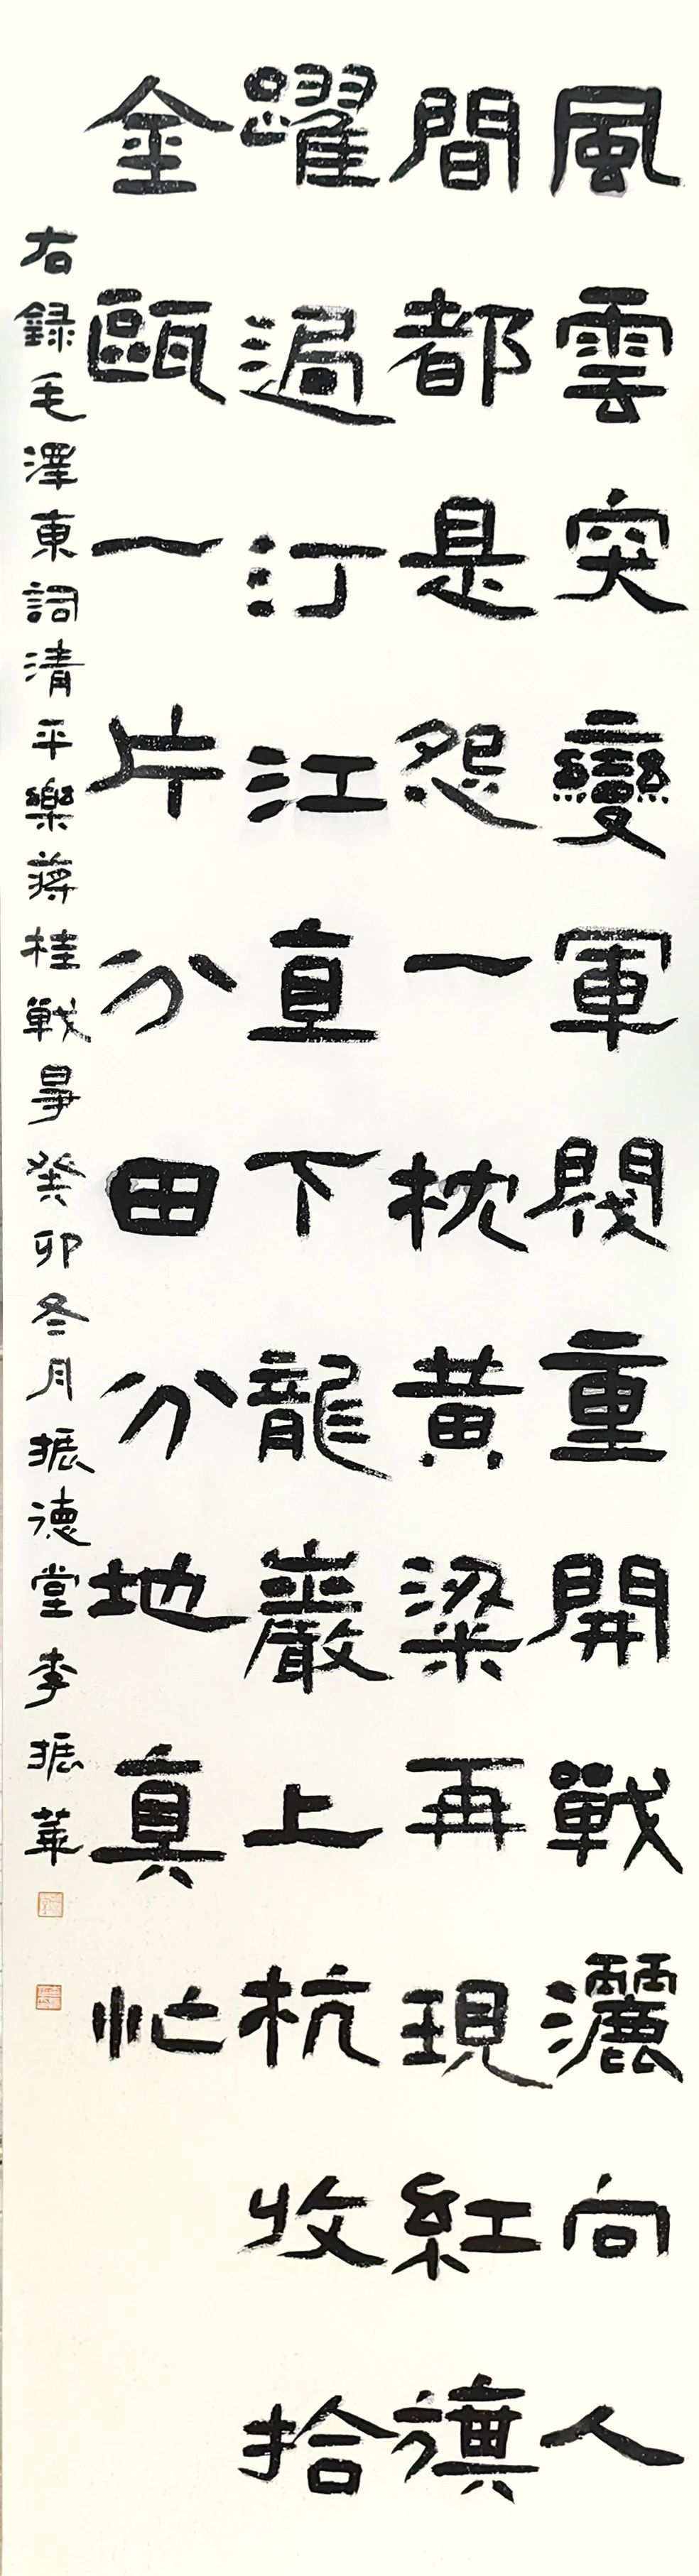 風雲突變軍閥重開戰灑向人
間都是怨一枕黃粱再現紅旗
躍過汀江直下龍巖上杭收拾
金甌一片分田分地真忙
右錄毛澤東詞清平樂蔣桂戰爭癸卯冬月振德堂李振華